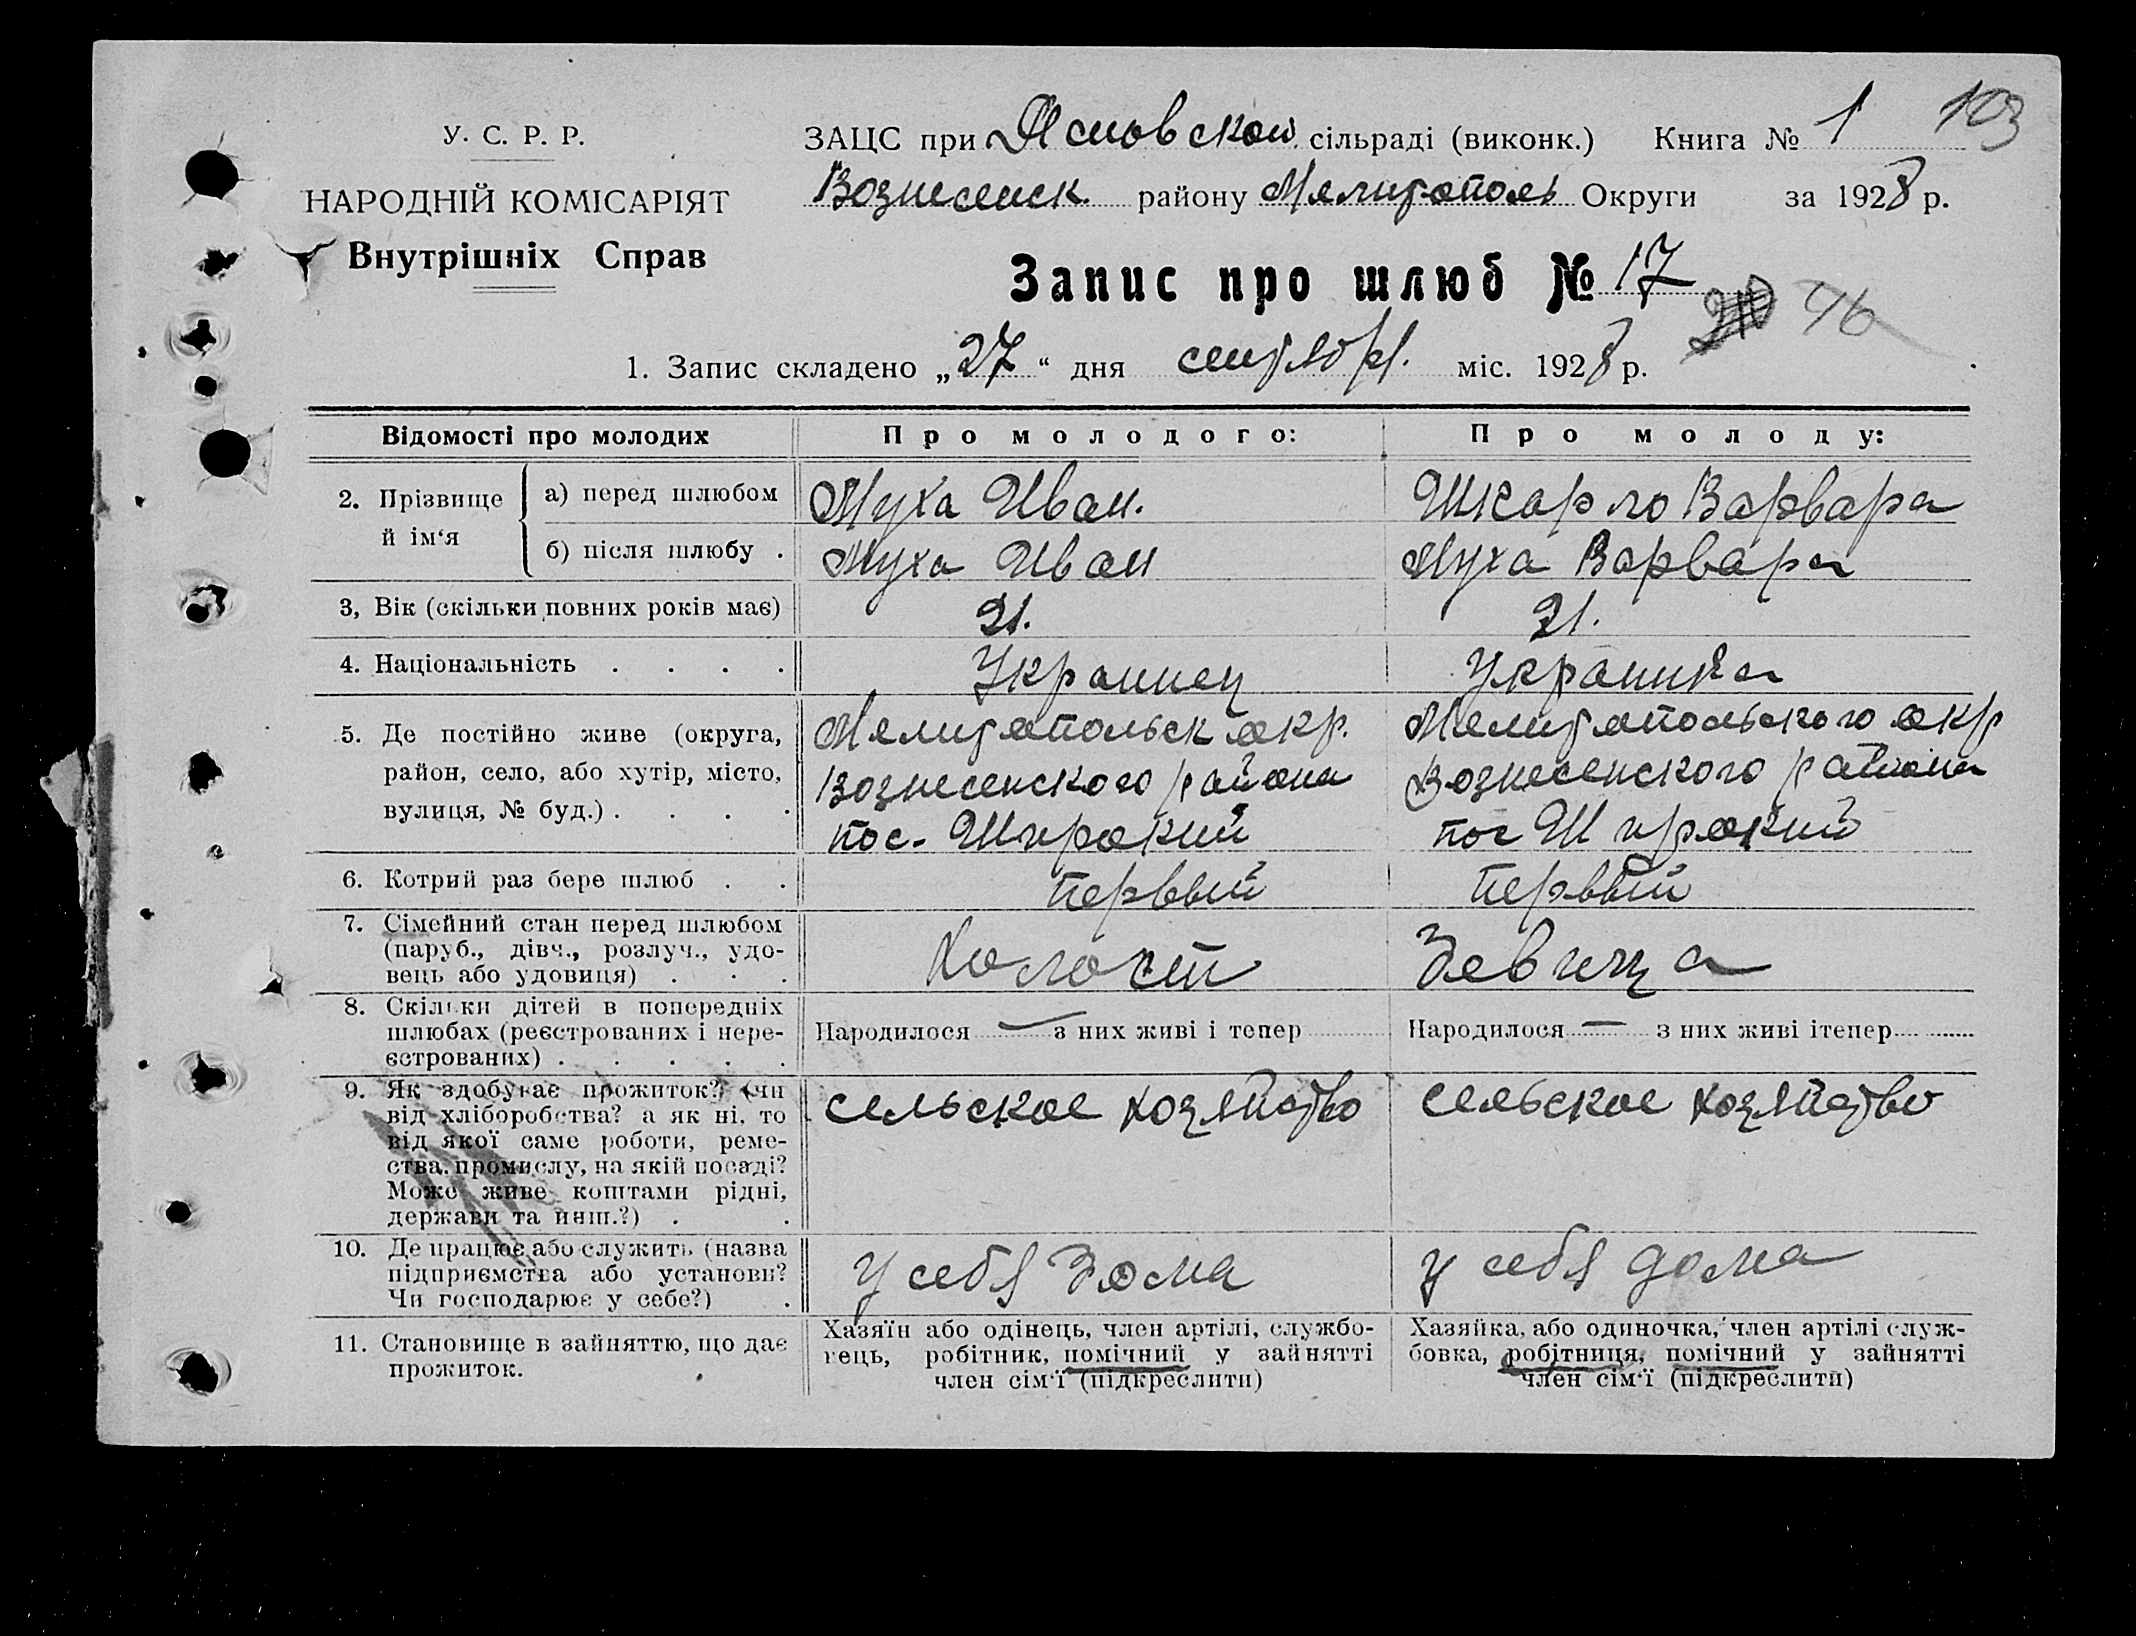 У. С. Р. Р.
НАРОДНІЙ КОМІСАРІЯТ
Внутрішніх Справ
ЗАЦС при сільраді (виконк.) Книга № 1 103
Вознесенск. району Мелитополь Округи за 1928 р.
Запис про шлюб № 17
46
1. Запис складено „27“ дня сентября. міс. 1928 р.
Відомості про молодих
Про молодого:
Про молоду:
2. Прізвище й ім‘я
а) перед шлюбом
Муха Иван.
Шкарло Варвара
б) після шлюбу .
Муха Иван
Муха Варвара
3, Вік (скільки повних років має)
21.
21.
4. Національність . . . .
Украинец
Украинка
5. Де постійно живе (округа,
район, село, або хутір, місто,
вулиця, № буд.) . . . .
Мелитопольск окр.
Вознесенского района
пос. Широкий
Мелитопольского окр
Вознесенского района
пос Широкий
6. Котрий раз бере шлюб . .
первый
первый
7. Сімейний стан перед шлюбом
(паруб., дівч., розлуч., удо-
вець або удовиця) . . .
Холост
Девица
8. Скільки дітей в попередніх
шлюбах (реєстрованих і нере-
єстрованих) . . . . .
Народилося — з них живі і тепер
Народилося — з них живі ітепер
9. Як здобуває прожиток? (чи
від хліборобства? а як ні, то
від якої саме роботи, реме-
ства, промислу, на якій посаді?
Може живе коштами рідні,
держави та инш.?) . .
сельское хозяйство
сельское хозяйство
10. Де працює або служить (назва
підприємства або установи?
Чи господарює у себе?) .
у себя дома
у себя дома
11. Становище в зайняттю, що дає
прожиток.
Хазяїн або одінець, член артілі, службо-
вець, робітник, помічний у зайнятті
член сім‘ї (підкреслити)
Хазяйка, або одиночка, член артілі служ-
бовка, робітниця, помічний у зайнятті
член сім‘ї (підкреслити)